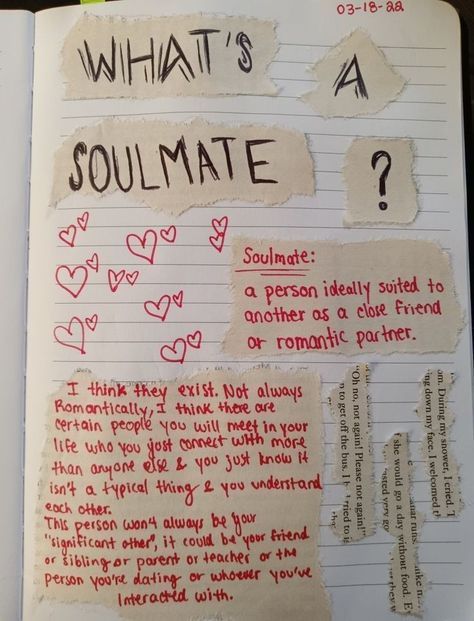 03-18-22
WHAT'S
A
SOULMATE
?
Soulmate:
a person ideally suited to
another as a close friend
or romantic partner.
I think they exist. Not always
Romantically, I think there are
certain people you will meet in your
life who you just connect with more
than anyone else & you just know it
isn't a typical thing & you understand
each other.
This person won't always be your
"significant other", it could be your friend
or sibling or parent or teacher or the
person you're dating or whoever you've
interacted with.
"Oh no, not again! Please not again!"
to get off the bus. I
tried to
she would go a day without food.
runs.
om. During my snower, I cried. T
ing down my face. I welcomed t